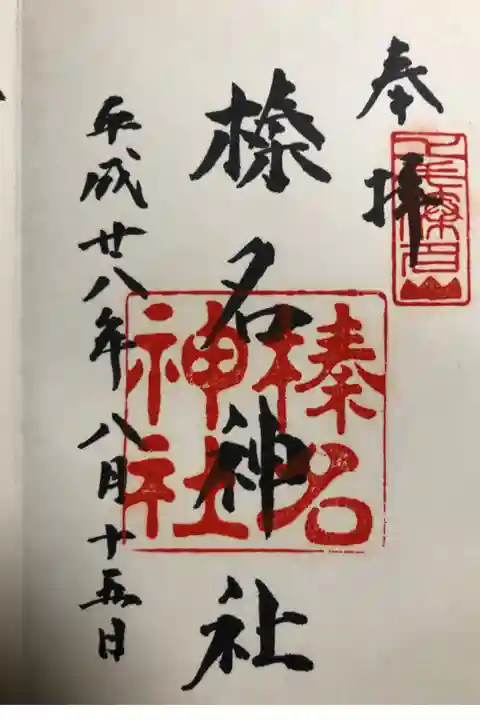 奉拝
榛名神社
榛名
神社
平成廿八年八月十五日